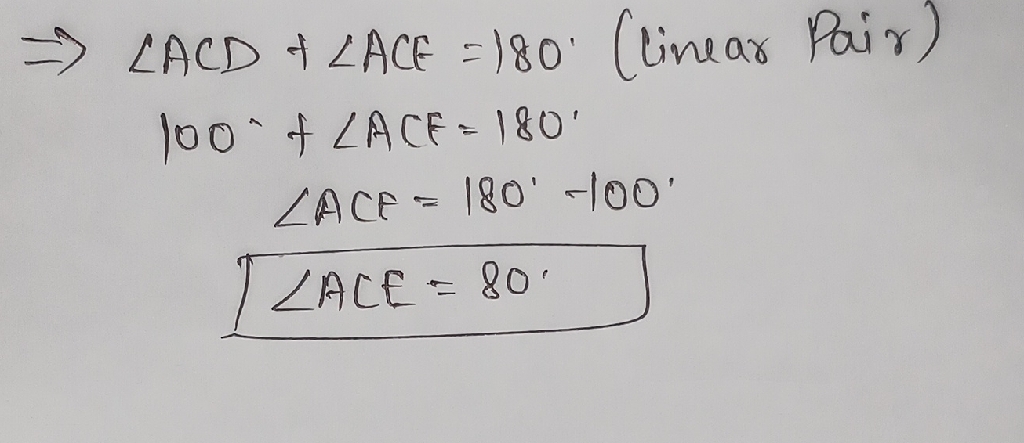 ⇒ ∠ACD + ∠ACE = 180° (linear Pair)
100° + ∠ACE = 180°
∠ACE = 180° - 100°
∠ACE = 80°